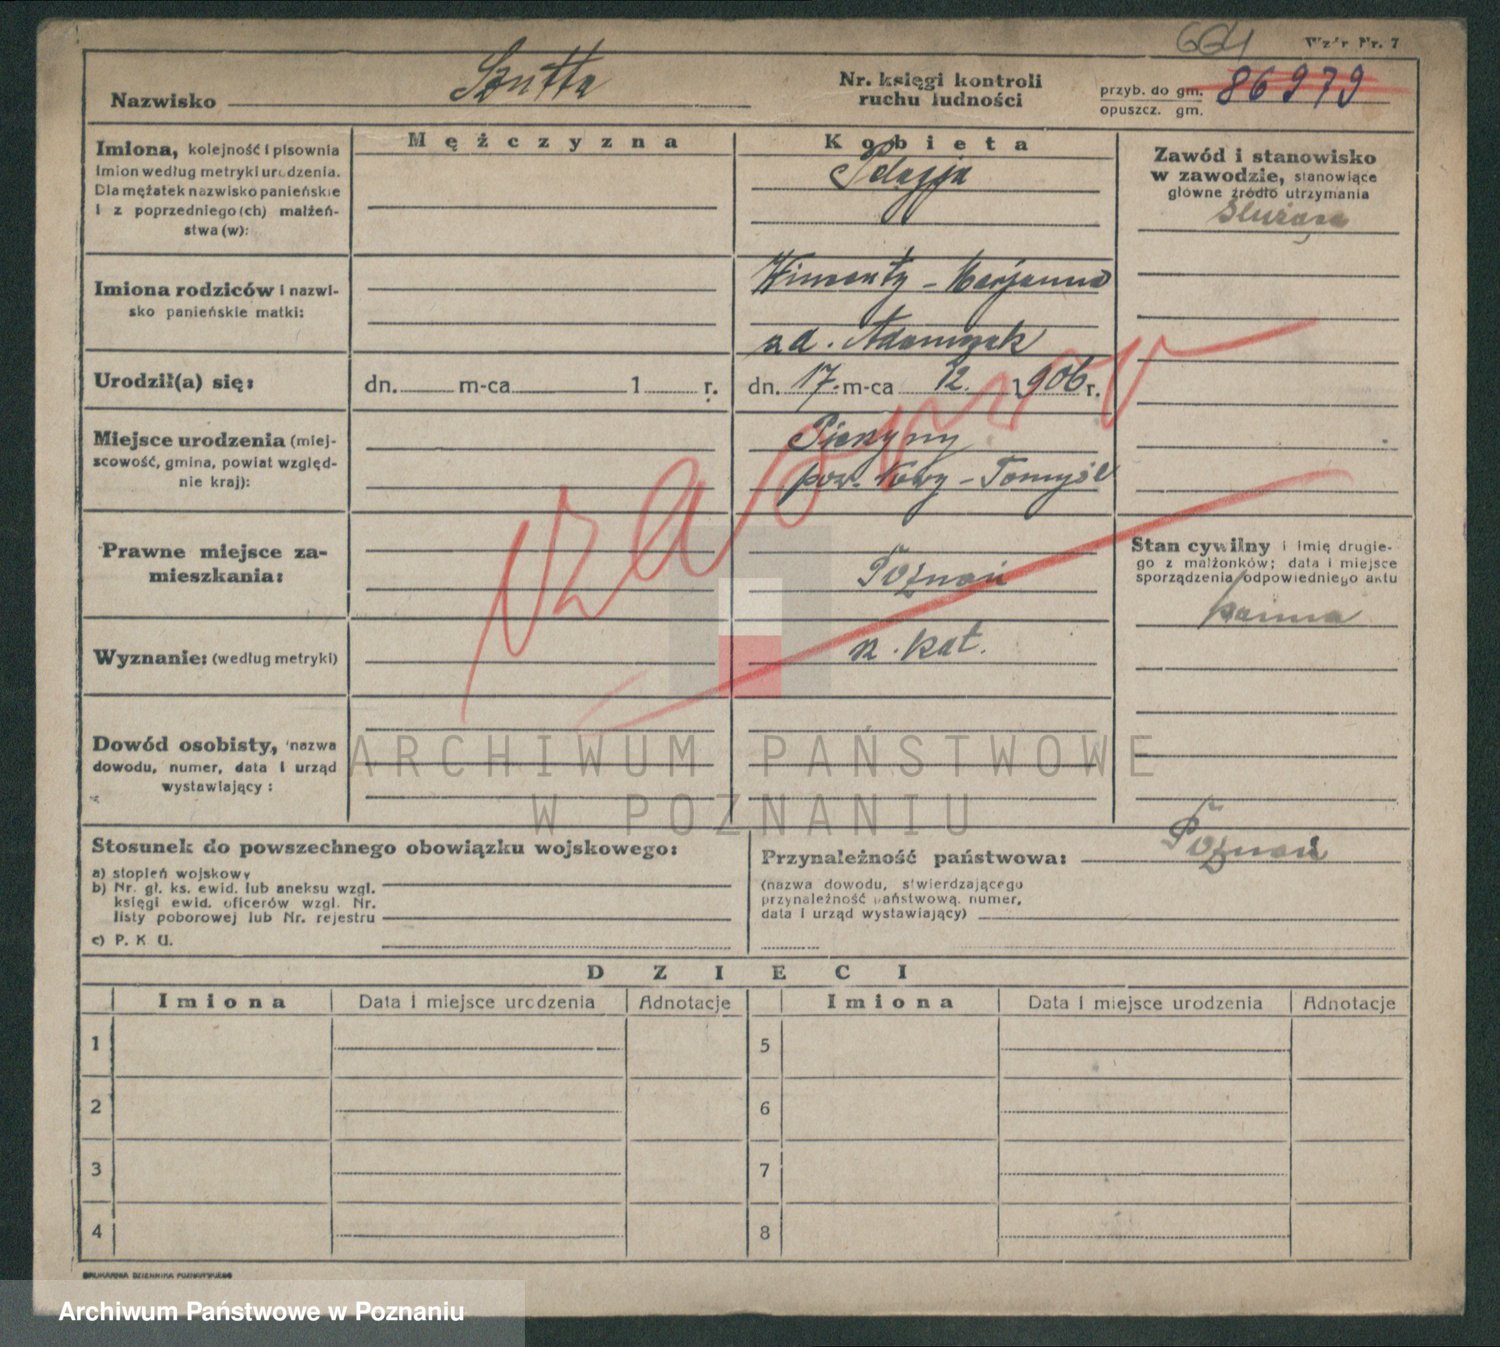 664
Wzór Nr. 7
Nazwisko Szutta
Nr. księgi kontroli
ruchu ludności
przyb. do gm.
opuszcz. gm.
86979
Mężczyzna
Kobieta
Imiona, kolejność i pisownia
imion według metryki urodzenia.
Dla mężatek nazwisko panieńskie
i z poprzedniego(ch) małżeń-
stwa(w):
Pelagja
Zawód i stanowisko
w zawodzie, stanowiące
główne źródło utrzymania
Służąca
Imiona rodziców i nazwi-
sko panieńskie matki:
Marjanna
Adamczak
Urodził(a) się:
dn. m-ca 1 r.
dn. 17. m-ca 12. 1906 r.
Miejsce urodzenia (miej-
scowość, gmina, powiat względ-
nie kraj):
pow. Nowy-Tomyśl
Prawne miejsce za-
mieszkania:
Poznań
Stan cywilny i imię drugie-
go z małżonków; data i miejsce
sporządzenia odpowiedniego aktu
panna
Wyznanie: (według metryki)
rz. kat.
Dowód osobisty, nazwa
dowodu, numer, data i urząd
wystawiający:
ARCHIWUM PAŃSTWOWE
W POZNANIU
Stosunek do powszechnego obowiązku wojskowego:
a) stopień wojskowy
b) Nr. gł. ks. ewid. lub aneksu wzgl.
księgi ewid. oficerów wzgl. Nr.
listy poborowej lub Nr. rejestru
c) P. K. U.
Przynależność państwowa: Poznań
(nazwa dowodu, stwierdzającego
przynależność państwową, numer,
data i urząd wystawiający)
DZIECI
Imiona Data i miejsce urodzenia Adnotacje Imiona Data i miejsce urodzenia Adnotacje
1 5
2 6
3 7
4 8
DRUKARNIA DZIENNIKA POZNAŃSKIEGO
Archiwum Państwowe w Poznaniu